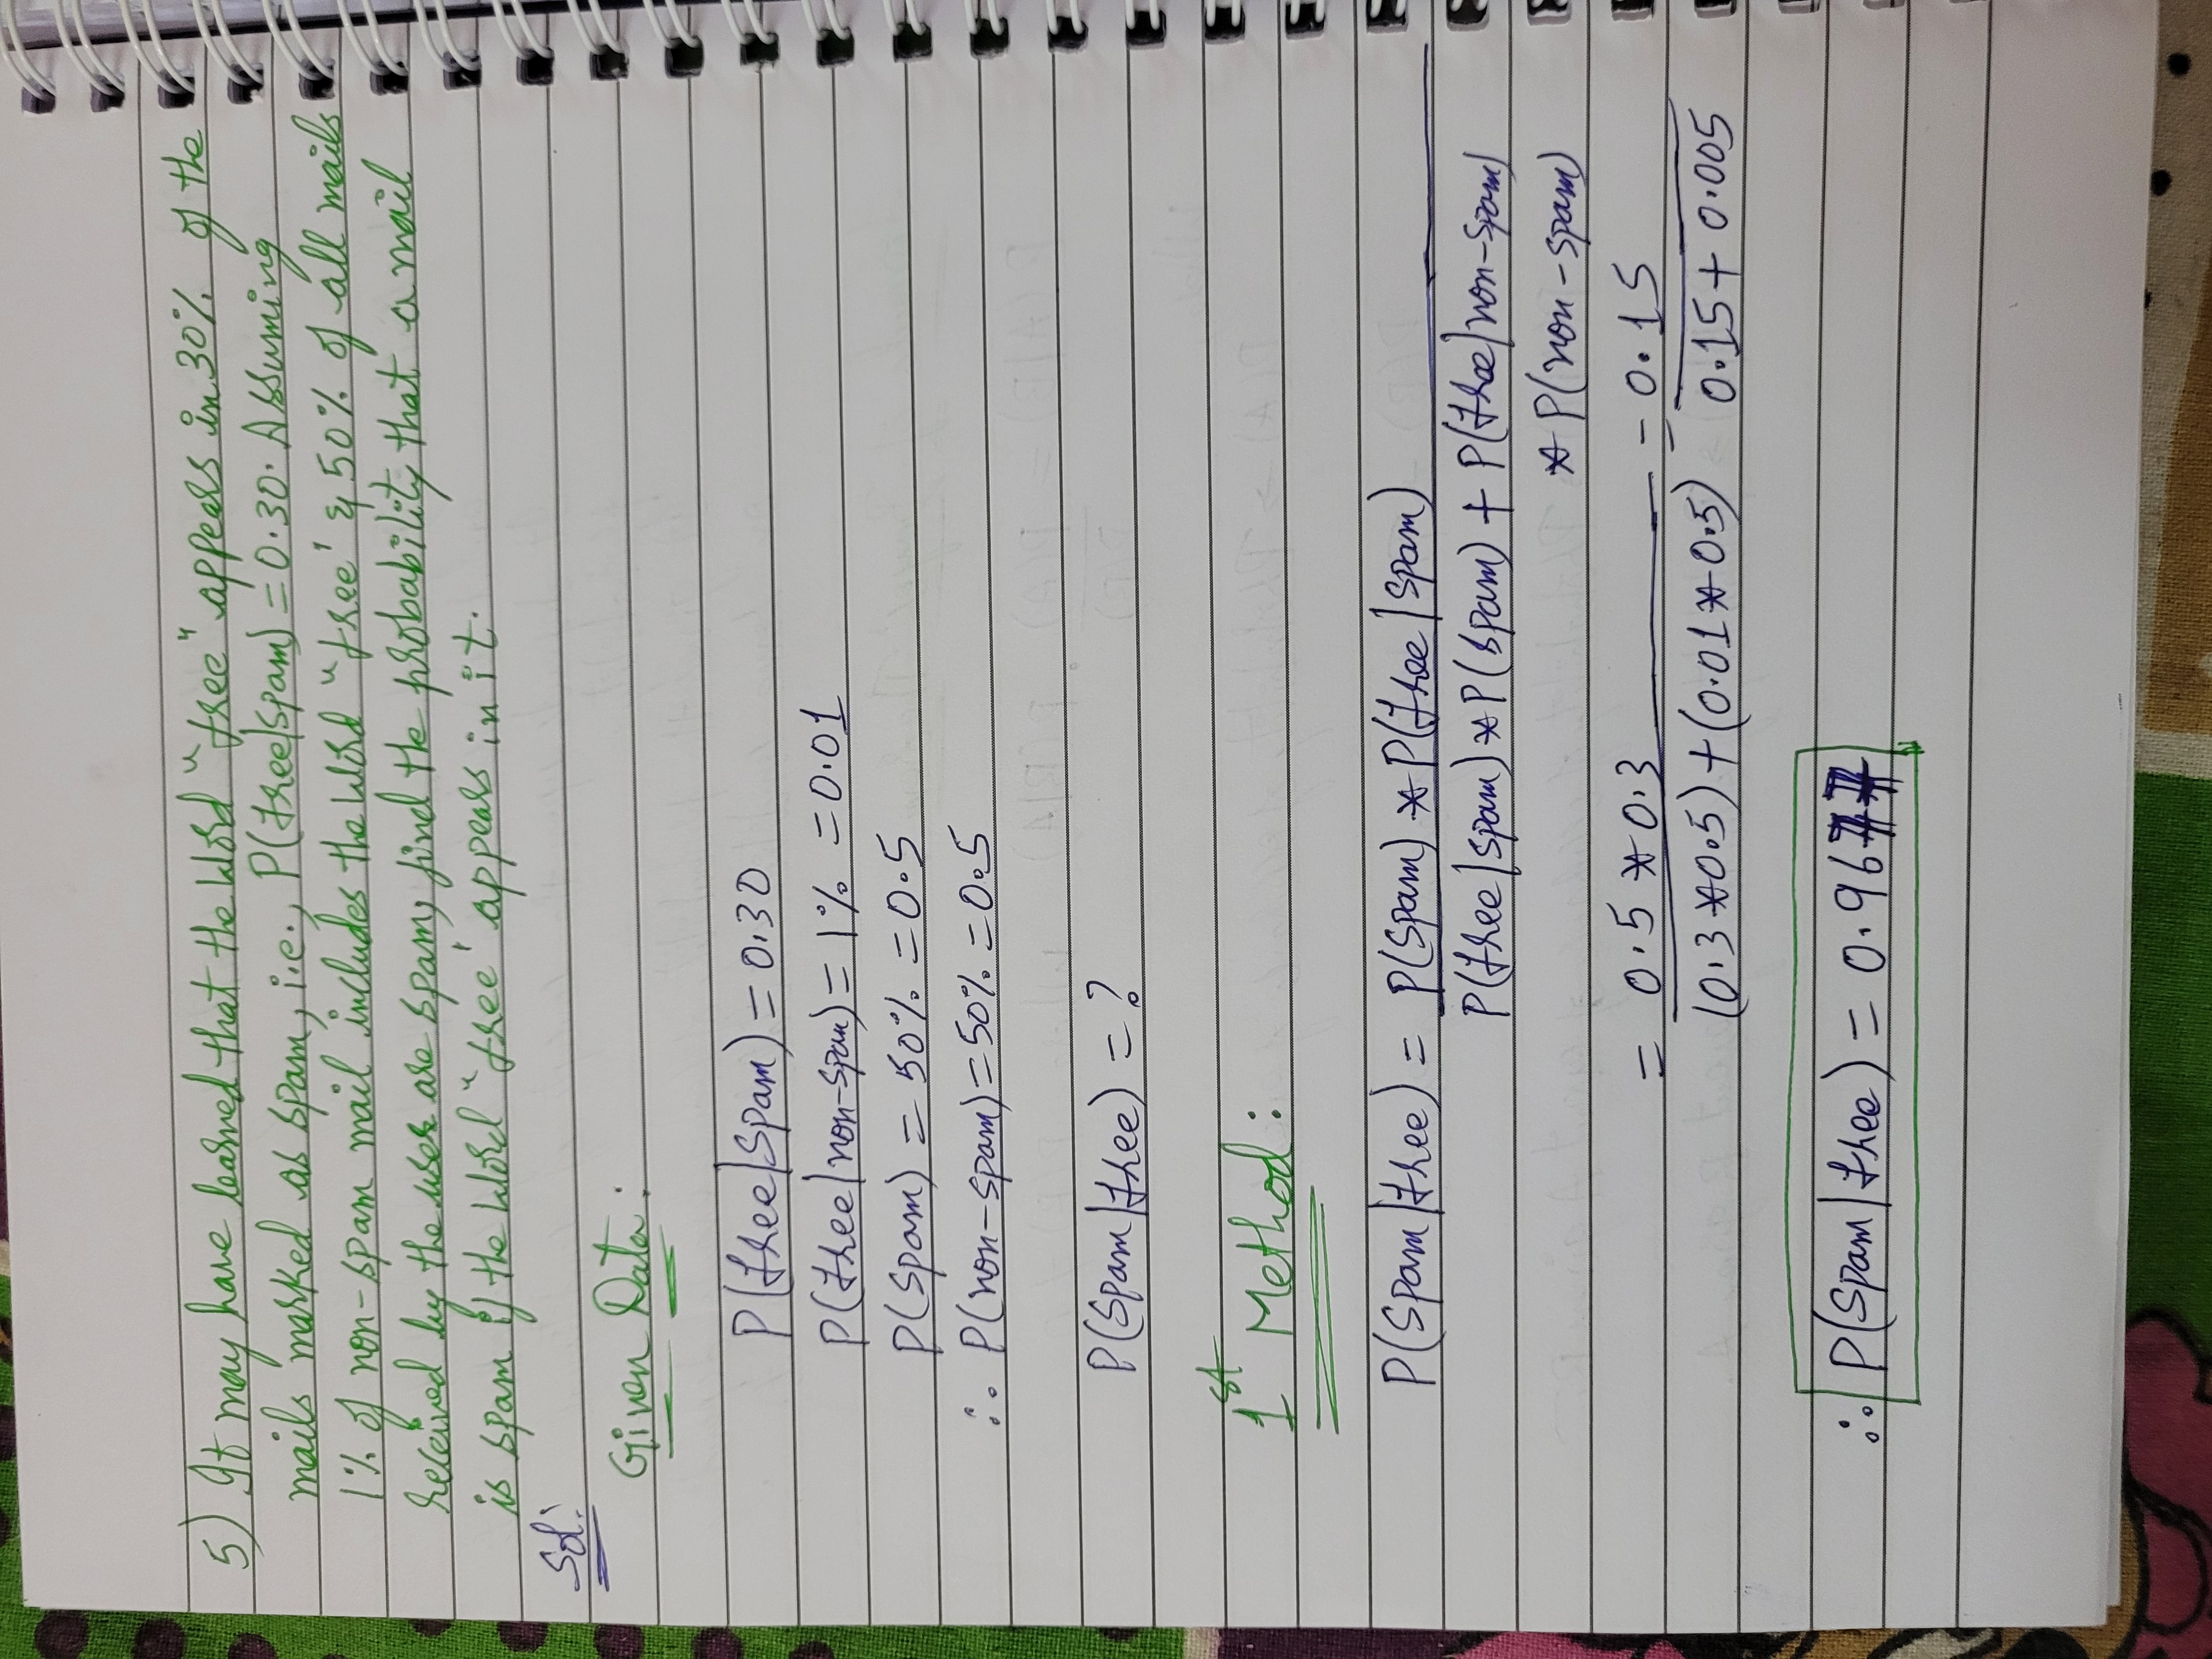 5) It may have learned that the word "free" appears in 30% of the
mails marked as spam, i.e., P(free|spam) = 0.30. Assuming
1% of non-spam mail includes the word "free' & 50% of all mails
received by the user are spam, find the probability that a mail
is spam if the word "free' appears in it.
Sol:
Given Data:
P(free|Spam) = 0.30
P(free|non-spam) = 1% = 0.01
P(Spam) = 50% = 0.5
∴ P(non-spam) = 50% = 0.5
P(Spam|free) = ?
1st Method:
P(Spam|free) = P(Spam) * P(free|spam)
P(free|spam) * P(spam) + P(free|non-spam)
* P(non-spam)
= 0.5 * 0.3 = 0.15
(0.3 * 0.5) + (0.01 * 0.5) 0.15 + 0.005
∴ P(Spam|free) = 0.96